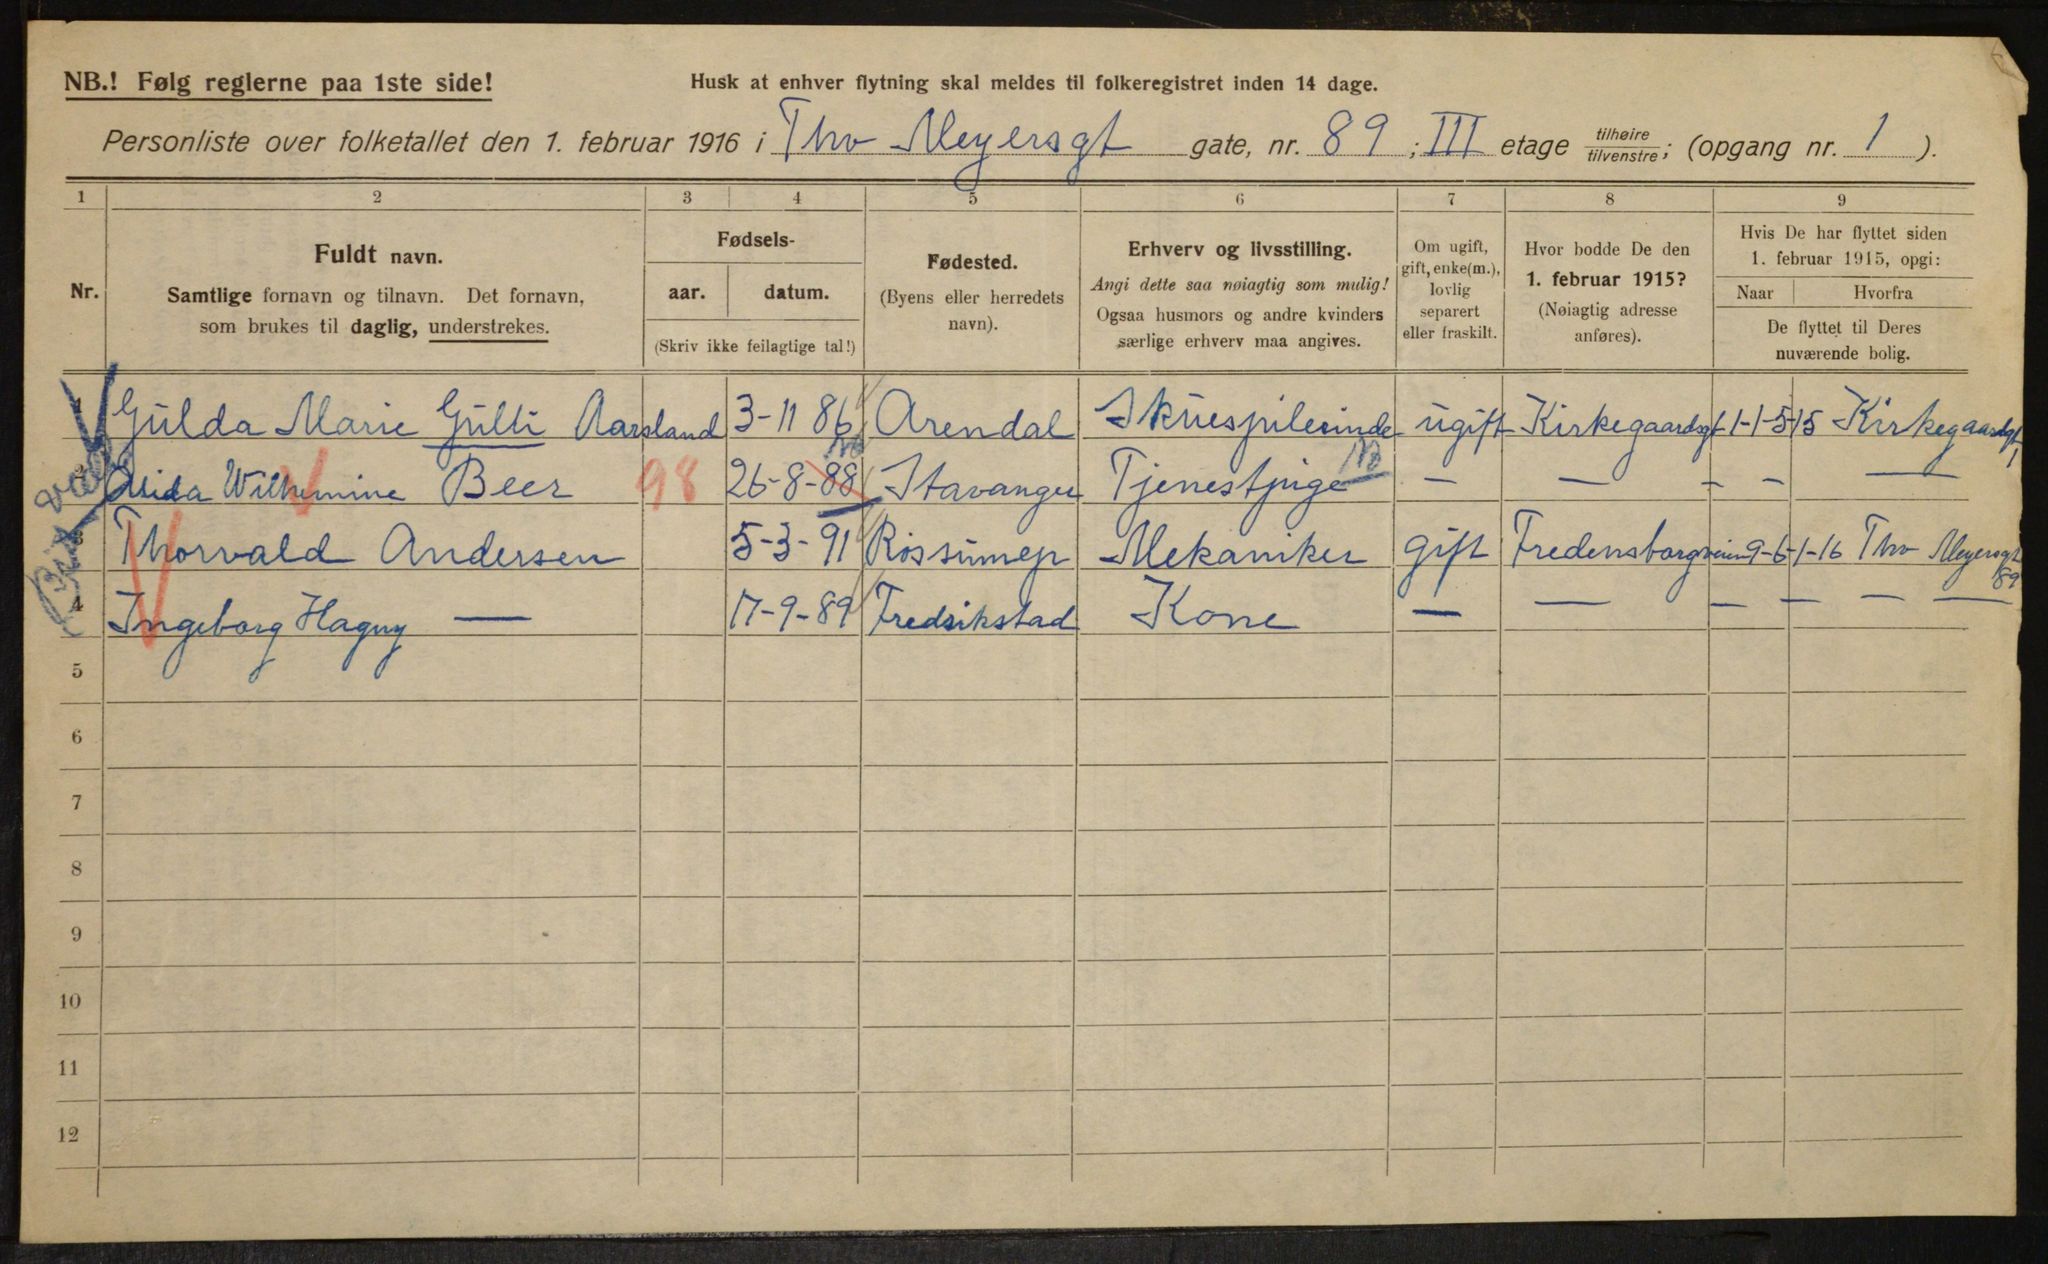 NB.! Følg reglerne paa 1ste side!
Husk at enhver flytning skal meldes til folkeregistret inden 14 dage.
Personliste over folketallet den 1. februar 1916 i Thv Meyersgt gate, nr. 89 ; III etage tilhøire/tilvenstre; (opgang nr. 1 ).
1 2 3 4 5 6 7 8 9
Nr.
Fuldt navn.
Samtlige fornavn og tilnavn. Det fornavn,
som brukes til daglig, understrekes.
Fødsels-
aar. datum.
(Skriv ikke feilagtige tal!)
Fødested.
(Byens eller herredets
navn).
Erhverv og livsstilling.
Angi dette saa nøiagtig som mulig!
Ogsaa husmors og andre kvinders
særlige erhverv maa angives.
Om ugift,
gift, enke(m.),
lovlig
separert
eller fraskilt.
Hvor bodde De den
1. februar 1915?
(Nøiagtig adresse
anføres).
Hvis De har flyttet siden
1. februar 1915, opgi:
Naar Hvorfra
De flyttet til Deres
nuværende bolig.
Gulda Marie Gulli Aarsland 3-11 86 Arendal Skuespilerinde ugift Kirkegaardsgt 1-1-5-15 Kirkegaardsgt 1
Wilhelmine Beer 98 26-8-88 Stavanger Tjenestpige — — — — —
Thorvald Andersen 5-3-91 Mekaniker gift Fredensborgveien 9-6-1-16 Thv Meyersgt 89
4 Ingeborg Hagny — 17-9-89 Fredrikstad Kone — — — — — —
5
6
7
8
9
10
11
12